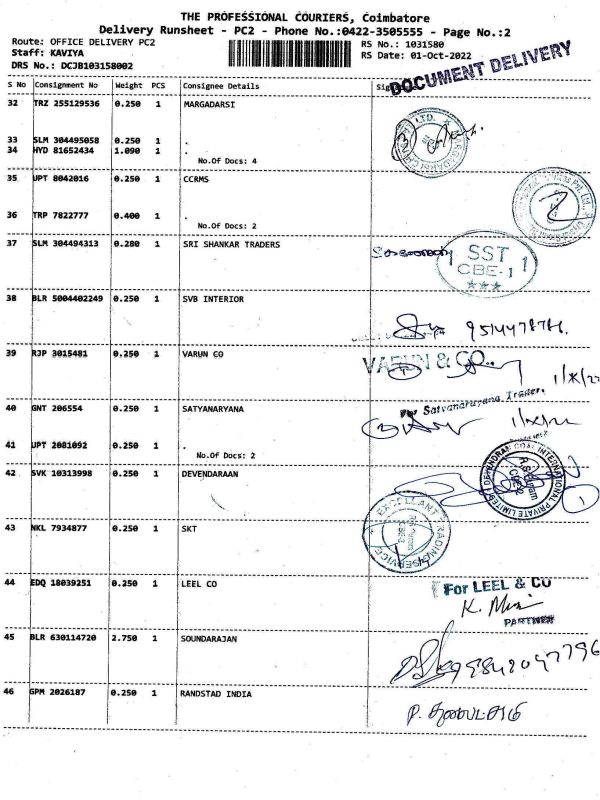 THE PROFESSIONAL COURIERS, Coimbatore
Delivery Runsheet - PC2 - Phone No.:0422-3505555 - Page No.:2
Route: OFFICE DELIVERY PC2 RS No.: 1031580
Staff: KAVIYA RS Date: 01-Oct-2022
DRS No.: DCJB103158002
DOCUMENT DELIVERY
S No Consignment No Weight PCS Consignee Details
32 TRZ 255129536 0.250 1 MARGADARSI
33 SLM 304495058 0.250 1 .
34 HYD 81652434 1.090 1 .
No.Of Docs: 4
35 UPT 8042016 0.250 1 CCRMS
36 TRP 7822777 0.400 1 .
No.Of Docs: 2
37 SLM 304494313 0.280 1 SRI SHANKAR TRADERS
1 SST 1
CBE-1
38 BLR 5004402249 0.250 1 SVB INTERIOR
39 RJP 3015481 0.250 1 VARUN CO
VARUN & CO.
40 GNT 206554 0.250 1 SATYANARYANA
For Satyanarayana Traders
41 UPT 2081092 0.250 1 .
No.Of Docs: 2
42 SVK 10313998 0.250 1 DEVENDARAAN
DEVENDRAN COAL INTERNATIONAL PRIVATE LIMITED
R.S. Puram
1
43 NKL 7934877 0.250 1 SKT
44 EDQ 18039251 0.250 1 LEEL CO
For LEEL & CO
PARTNER
45 BLR 630114720 2.750 1 SOUNDARAJAN
46 GPM 2026187 0.250 1 RANDSTAD INDIA